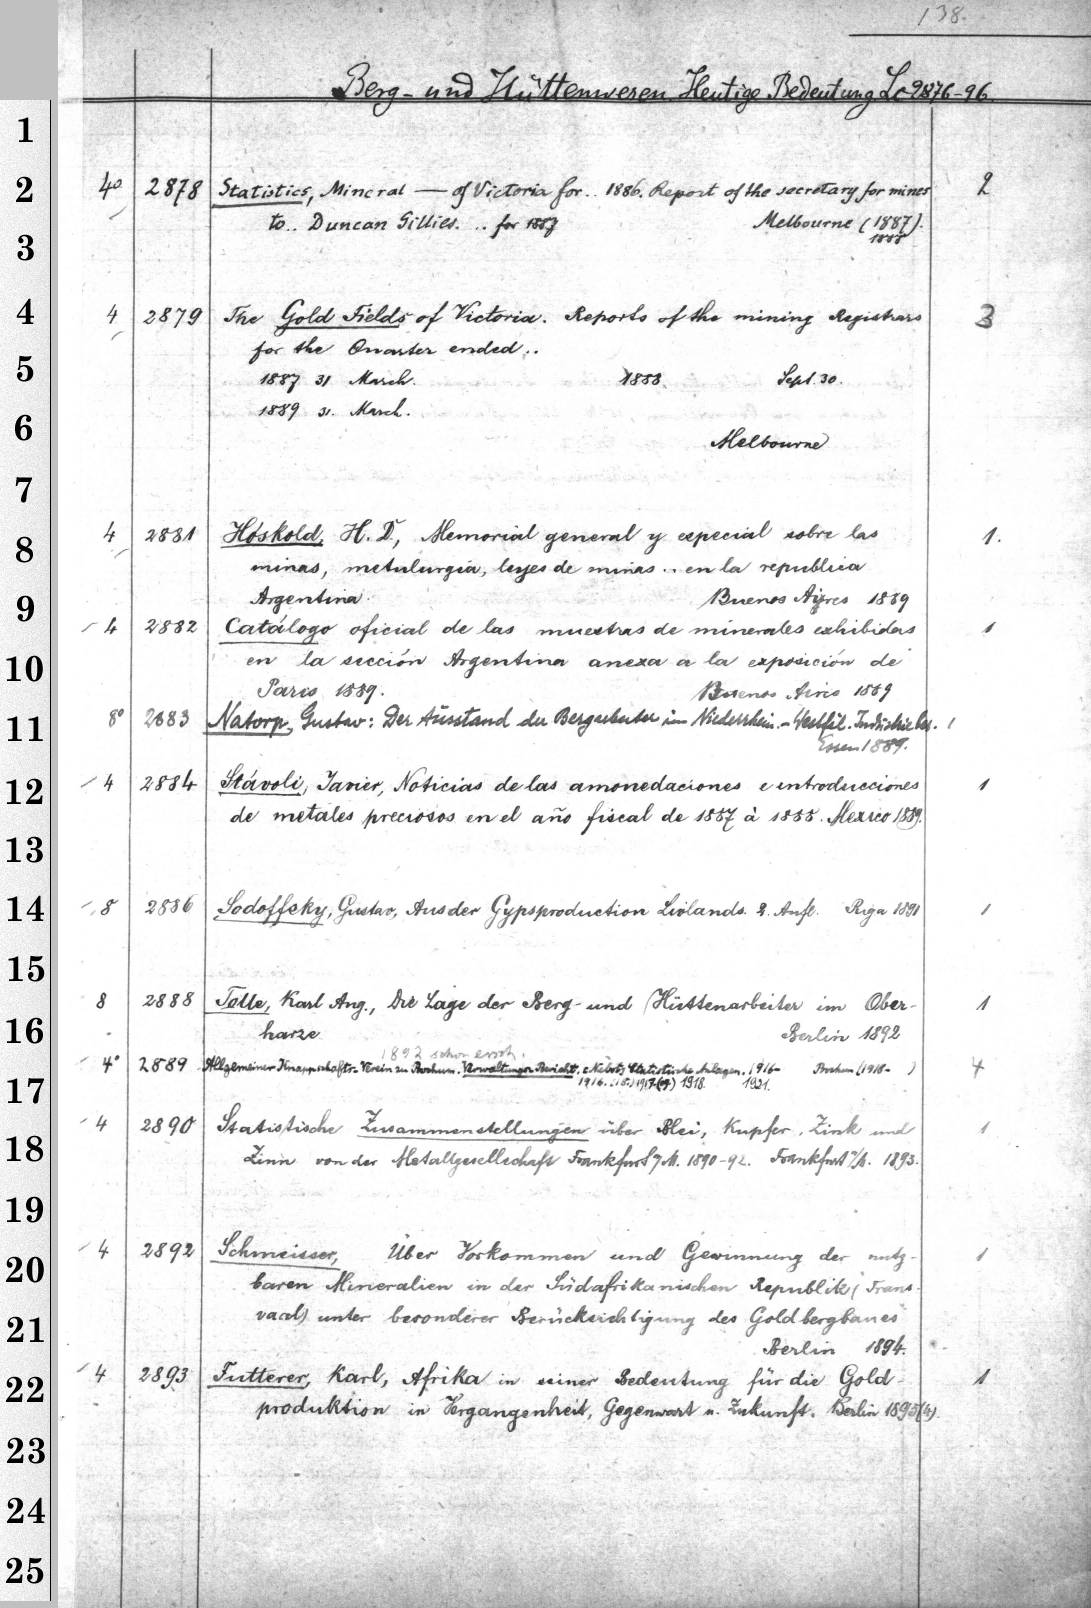 138.
Berg- und Hüttenwesen Heutige Bedeutung Lc 2876-96
1
2
3
4
5
6
7
8
9
10
11
12
13
14
15
16
17
18
19
20
21
22
23
24
25
4° 2878 Statistics, Mineral — of Victoria for.. 1886. Report of the secretary for mines 2
to.. Duncan Gillies. .. for 1887 Melbourne (1887).
1888
4 2879 The Gold Fields of Victoria. Reports of the mining Registrars 3
for the Quarter ended..
1887 31 March. 1888. Sept. 30.
1889 31. March.
Melbourne
4 2881 Hóskold, H. D., Memorial general y especial sobre las 1.
minas, metalurgia, leyes de minas .. en la republica
Argentina. Buenos Ayres 1889
4 2882 Catálogo oficial de las muestras de minerales exhibidas 1
en la sección Argentina anexa a la exposición de
Paris 1889. Buenos Aires 1889
8° 2883 Natorp, Gustav: Der Ausstand der Bergarbeiter im Niederrhein.-Westfäl. Industriebez. 1
Essen 1889.
4 2884 Stávoli, Javier, Noticias de las amonedaciones e introducciones 1
de metales preciosos en el año fiscal de 1887 à 1888. Mexico 1889.
8 2886 Sodoffsky, Gustav, Aus der Gypsproduction Livlands. 2. Aufl. Riga 1891 1
8 2888 Tolle, Karl Aug., Die Lage der Berg- und Hüttenarbeiter im Ober- 1
harze Berlin 1892
1892 schon ersch.
4° 2889 Allgemeiner Knappschafts-Verein zu Bochum. Verwaltungs-Bericht. Nebst Statistische Anlagen. 1916- Bochum (1918- ) 4
1916. 1917 1918. 1921.
4 2890 Statistische Zusammenstellungen über Blei, Kupfer, Zink und 1
Zinn von der Metallgesellschaft Frankfurt /M. 1890-92. Frankfurt 1893.
4 2892 Schmeisser, Über Vorkommen und Gewinnung der nutz- 1
baren Mineralien in der Südafrikanischen Republik (Trans-
vaal) unter besonderer Berücksichtigung des Goldbergbaues
Berlin 1894.
4 2893 Futterer, Karl, Afrika in seiner Bedeutung für die Gold- 1
produktion in Vergangenheit, Gegenwart u. Zukunft. Berlin 1895